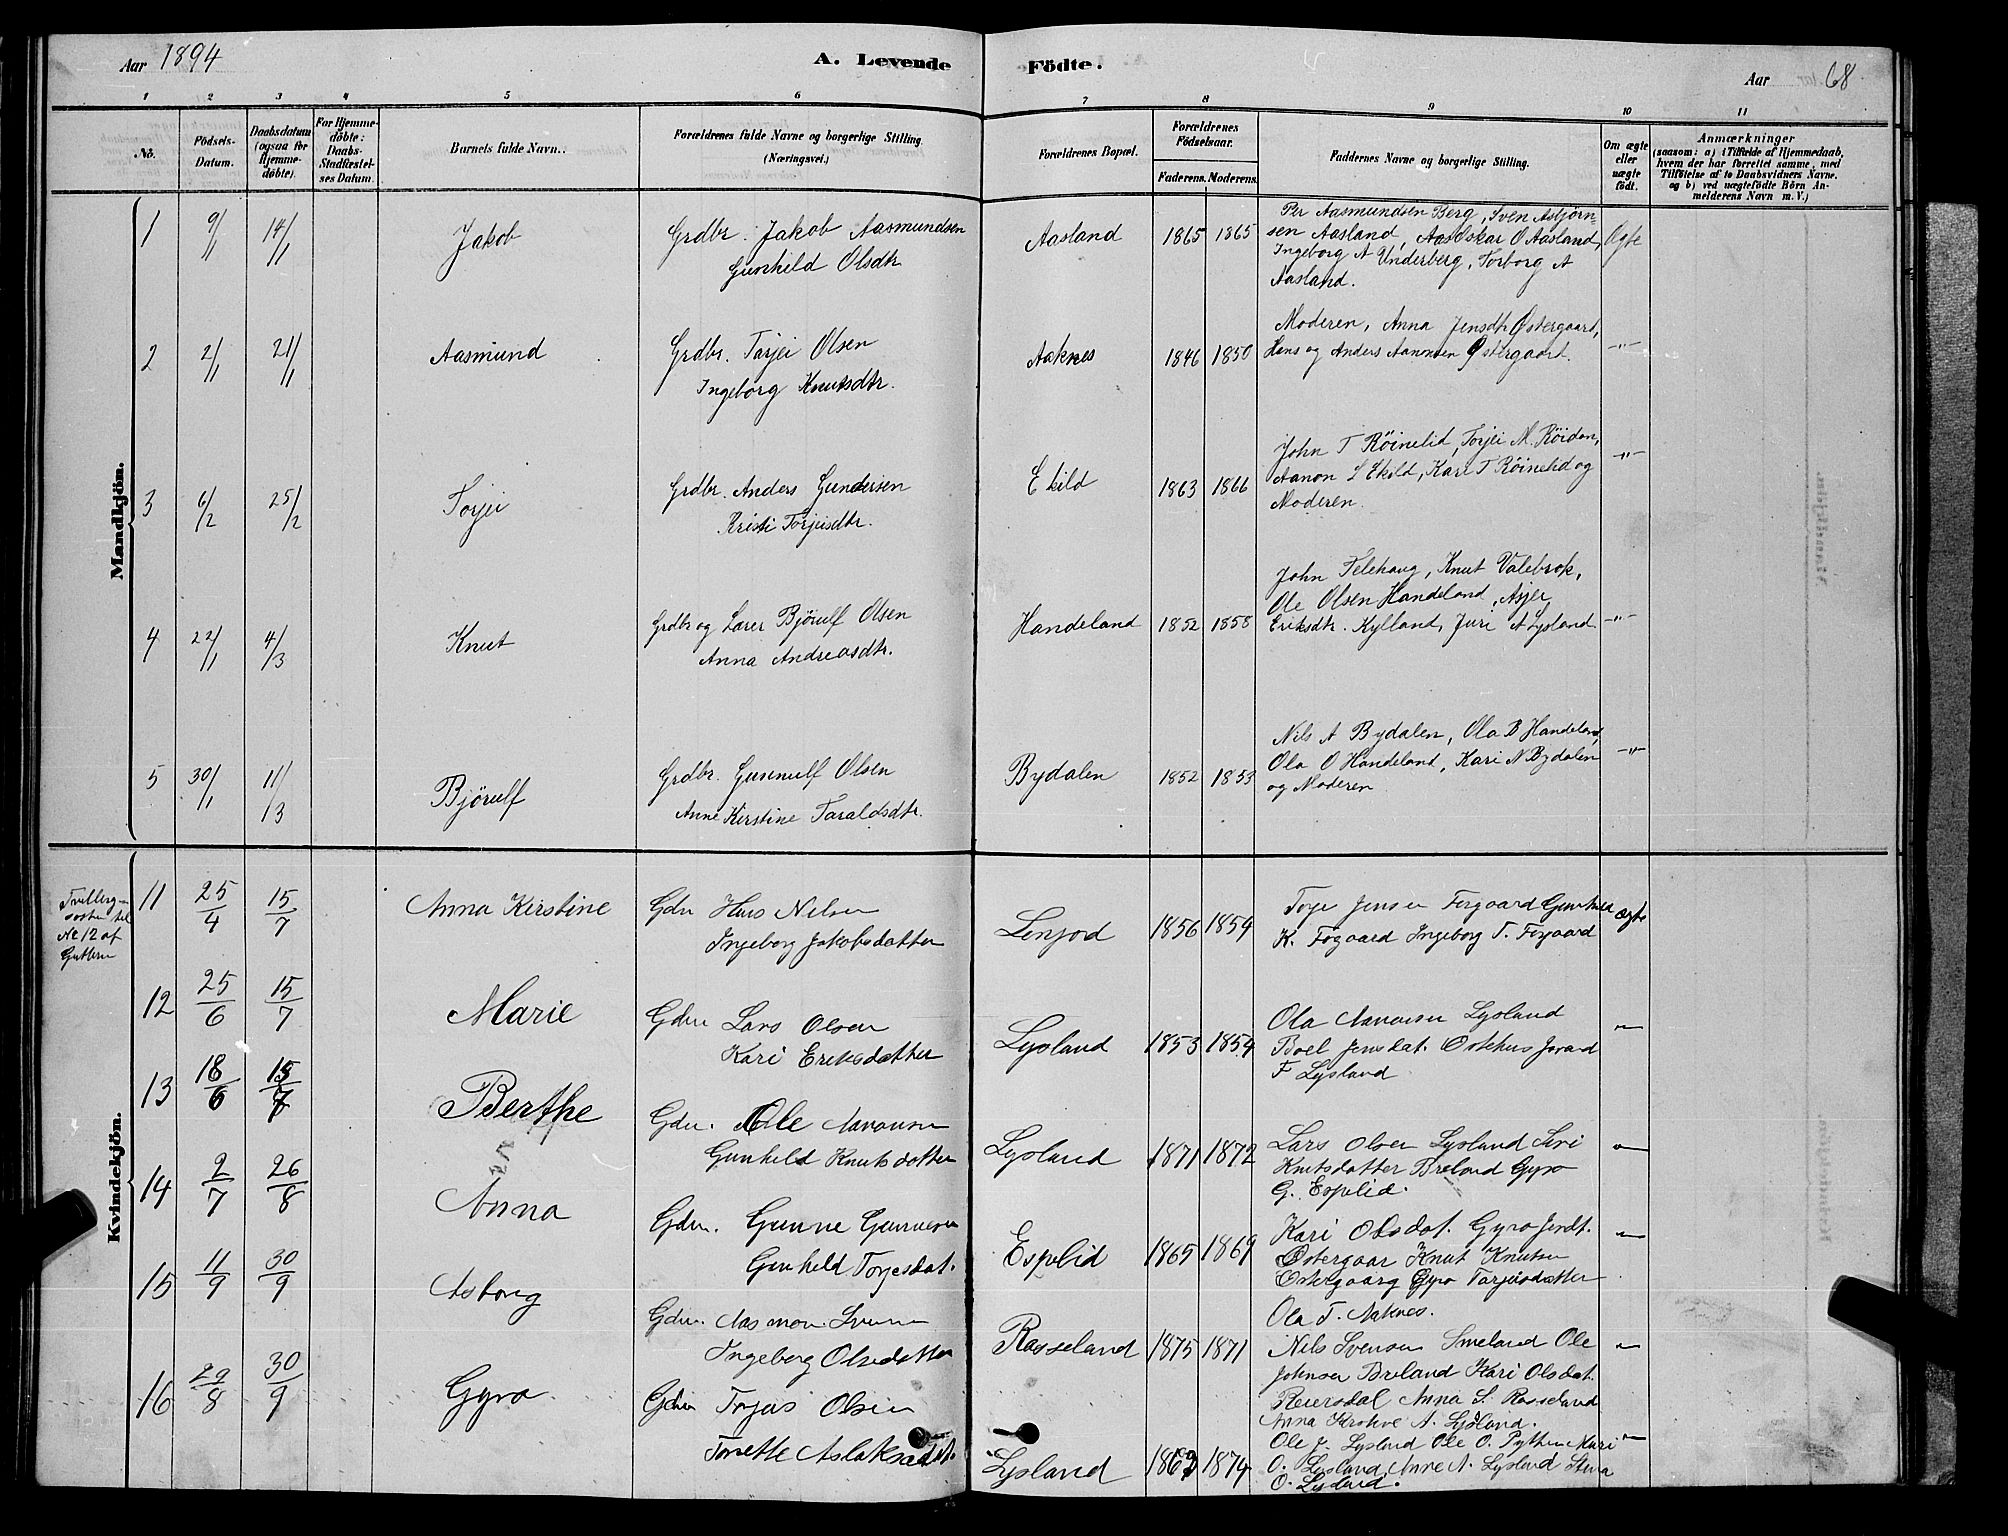 Aar 1894
A. Levende Födte.
Aar 68
1 2 3 4 5 6 7 8 9 10 11
No.
Födsels-Datum.
Daabsdatum (ogsaa for Hjemme-döbte).
For Hjemme-döbte: Daabs-Stadfæstel-ses Datum.
Barnets fulde Navn.
Forældrenes fulde Navne og borgerlige Stilling. (Næringsvei.)
Forældrenes Bopæl.
Forældrenes Födselsaar.
Faderens. Moderens.
Faddernes Navne og borgerlige Stilling.
Om ægte eller uægte födt.
Anmærkninger
(saasom: a) i Tilfælde af Hjemmedaab, hvem der har forrettet samme, med Tilföielse af to Daabsvidners Navne, og b) ved uægtefödte Börn An-melderens Navn m. V.)
Mandkjön.
1 9/1 14/1 Jakob Grdbr. Jakob Aasmundsen Aasland 1865 1865 Per Aasmundsen Berg, Sven Asbjörn=
Gunhild Olsdtr sen Aasland, Aasoskar O Aasland, Ægte
Ingeborg A Underberg, Torborg A
Aasland.
2 2/1 21/1 Aasmund Grdbr. Torjei Olsen Aaknes 1846 1850 Moderen, Anna Jensdtr Østergaart,
Ingeborg Knutsdtr. Hans og Anders Aanonsen Østergaart. -"-
3 6/2 25/2 Torjei Grdbr. Anders Gundersen Ekild 1863 1866 John T Röinelid, Torjei M. Röidan,
Kristi Torjeisdtr. Aanon L Ekild, Kari T Röinelid og -"-
Moderen.
4 22/1 4/3 Knut Grdbr og Lærer Björulf Olsen Handeland 1852 1858 John Telehaug, Knut Valebrok,
Anna Andreasdtr. Ole Olsen Handeland, Asjer
Eriksdtr. Kylland, Juri A Lysland -"-
5 30/1 11/3 Björulf Grdbr. Gunnulf Olsen Bydalen 1852 1853 Nils A Bydalen, Ola B Handeland,
Anne Kirstine Taraldsdtr. Ola O Handeland, Kari N Bydalen -"-
og Moderen
Kvindekjön.
Tvilling-
søster til
No 12 af
Guttern
11 25/4 15/7 Anna Kirstine Gdr Hans Nilsen Lenjod 1856 1859 Torje Jensen Forgaard Gunhild ægte
Ingeborg Jakobsdatter K. Fogaard Ingeborg T. Forgaard
12 25/6 15/7 Marie Gdr Lars Olsen Lysland 1853 1854 Ola Aanonsen Lysland "
Kari Eriksdatter Boel Jensdat. Ostehus
F Lysland
13 18/6 15/7 Berthe Gdr. Ole Aanonsen Lysland 1871 1872 Lars Olsen Lysland Siri "
Gunhild Knutsdatter Knutsdatter Breland Gyro
G. Espelid.
14 2/7 26/8 Anna Gdr. Gunne Gunnersen Espelid 1865 1869 Kari Olsdat. Gyro Jendt. "
Gunheld Torjesdat. Østergaar Knut Knutsen
Ostergaarg Gyro Tarjeisdatter
Ola T. Aaknes.
15 11/9 30/9 Asborg Gdr. Aasmon Svensen Rosseland 1875 1871 Nils Svensen Smeland Ole "
Ingeberg Olsdatter Johnsen Breland Kari Olsdat.
Reiersdal Anna S. Rosseland
Anna A. Lysland.
16 29/8 30/9 Gyro. Gdr Torjus Olsen Lysland 1874 Ole J. Lysland Ole O. Mari "
Tonette Aslaksdat. O. Lysland Anne A. Lysland Stina
O. Lysland.